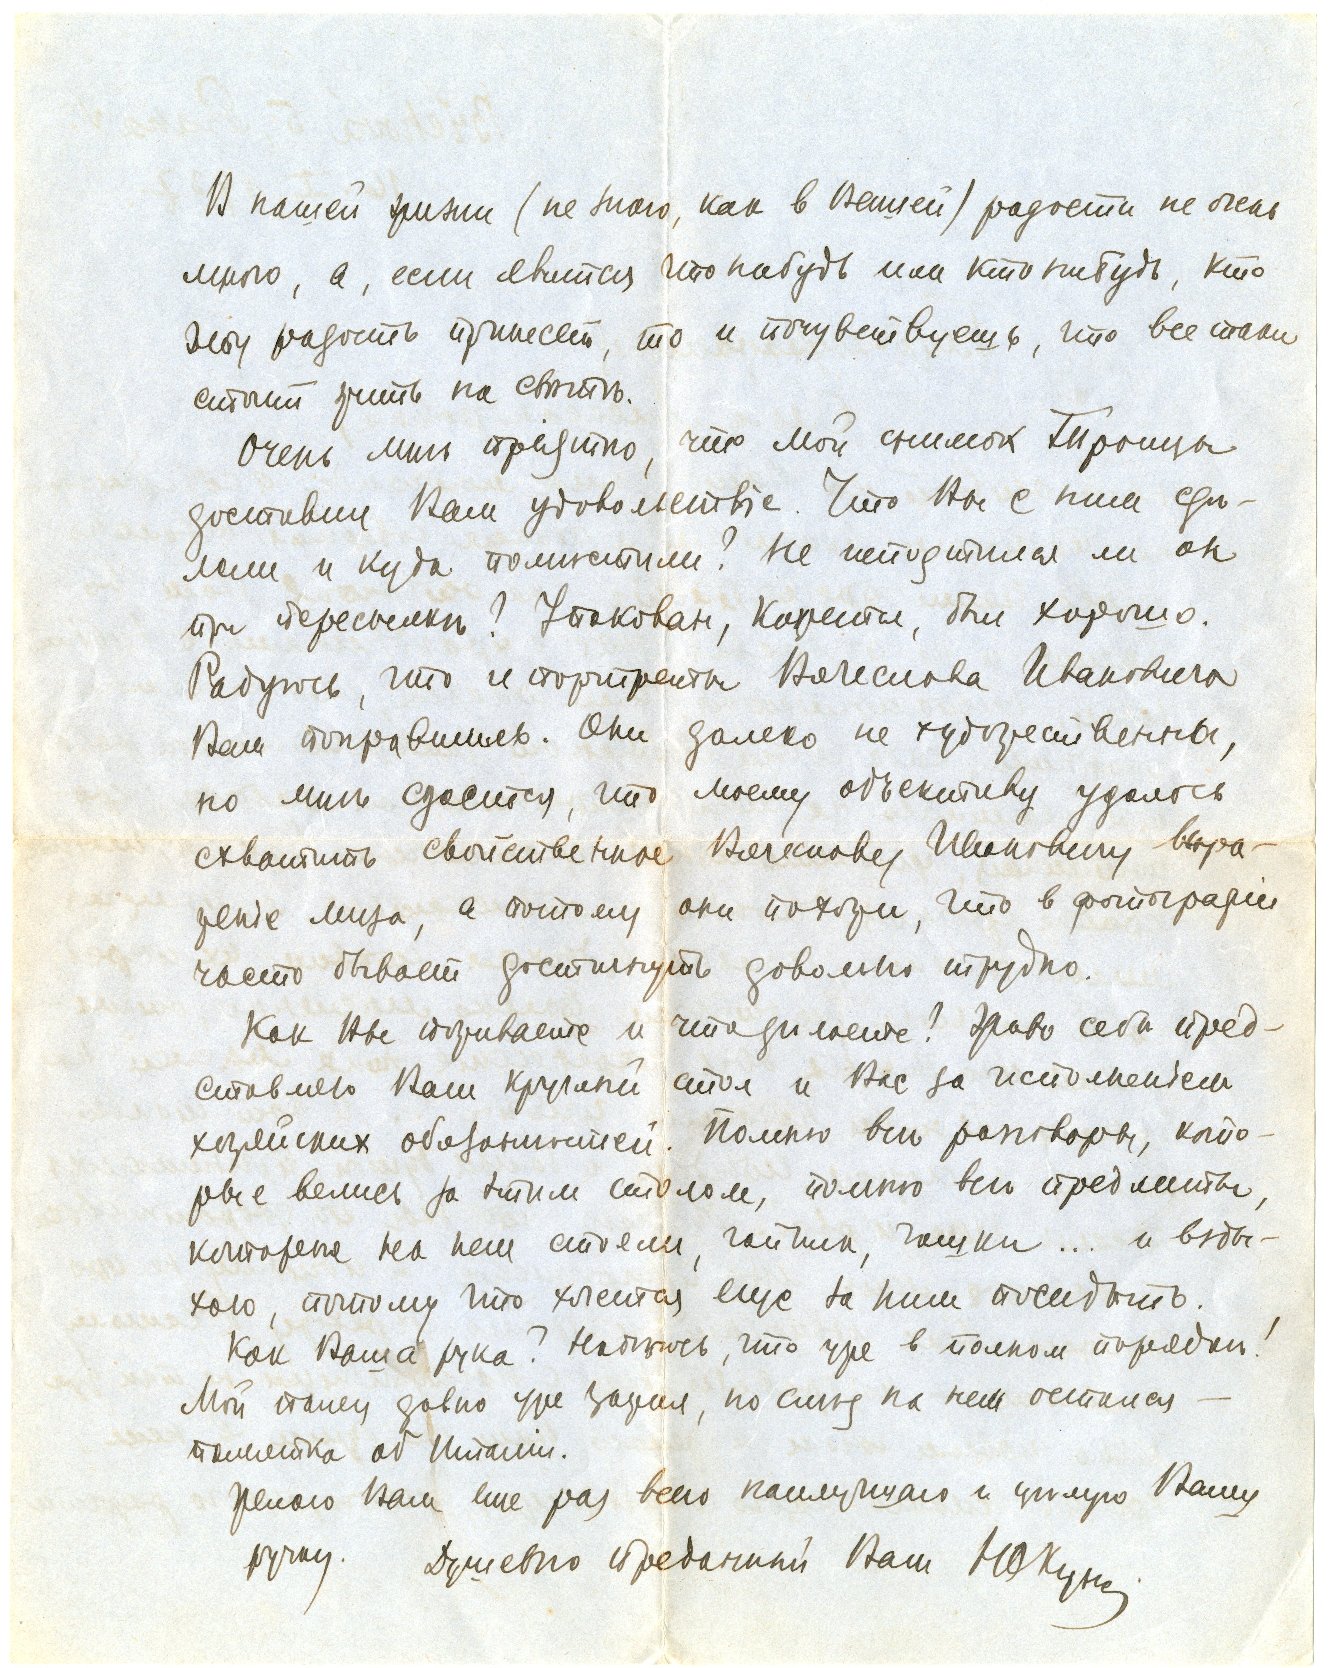 В нашей жизни (не знаю, как в Вашей) радости не очень
много, а, если явится что нибудь или кто нибудь, кто
эту радость принесет, то и почувствуешь, что все таки
стоит жить на свѣтѣ.
Очень мнѣ пріятно, что мой снимок Троицы
доставил Вам удовольствіе. Что Вы с ним сдѣ-
лали и куда помѣстили? Не испортился ли он
при пересылкѣ? Упакован, кажется, был хорошо.
Радуюсь, что и портреты Вячеслава Ивановича
Вам понравились. Они далеко не художественны,
но мнѣ сдается, что моему объективу удалось
схватить свойственное Вячеславу Ивановичу выра-
женіе лица, а потому они похожи, что в фотографіи
часто бывает достигнуть довольно трудно.
Как Вы поживаете и что дѣлаете? Живо себѣ пред-
ставляю Ваш круглый стол и Вас за исполненіем
хозяйских обязанностей. Помню всѣ разговоры, кото-
рые велись за этим столом, помню всѣ предметы,
которые на нем стояли, чайник, чашки ... и взды-
хаю, потому что хочется еще за ним посидѣть.
Как Ваша рука? Надѣюсь, что уже в полном порядкѣ!
Мой палец давно уже зажил, но слѣд на нем остался —
памятка об Италіи.
Желаю Вам еще раз всего наилучшаго и цѣлую Вашу
ручку. Душевно преданный Ваш